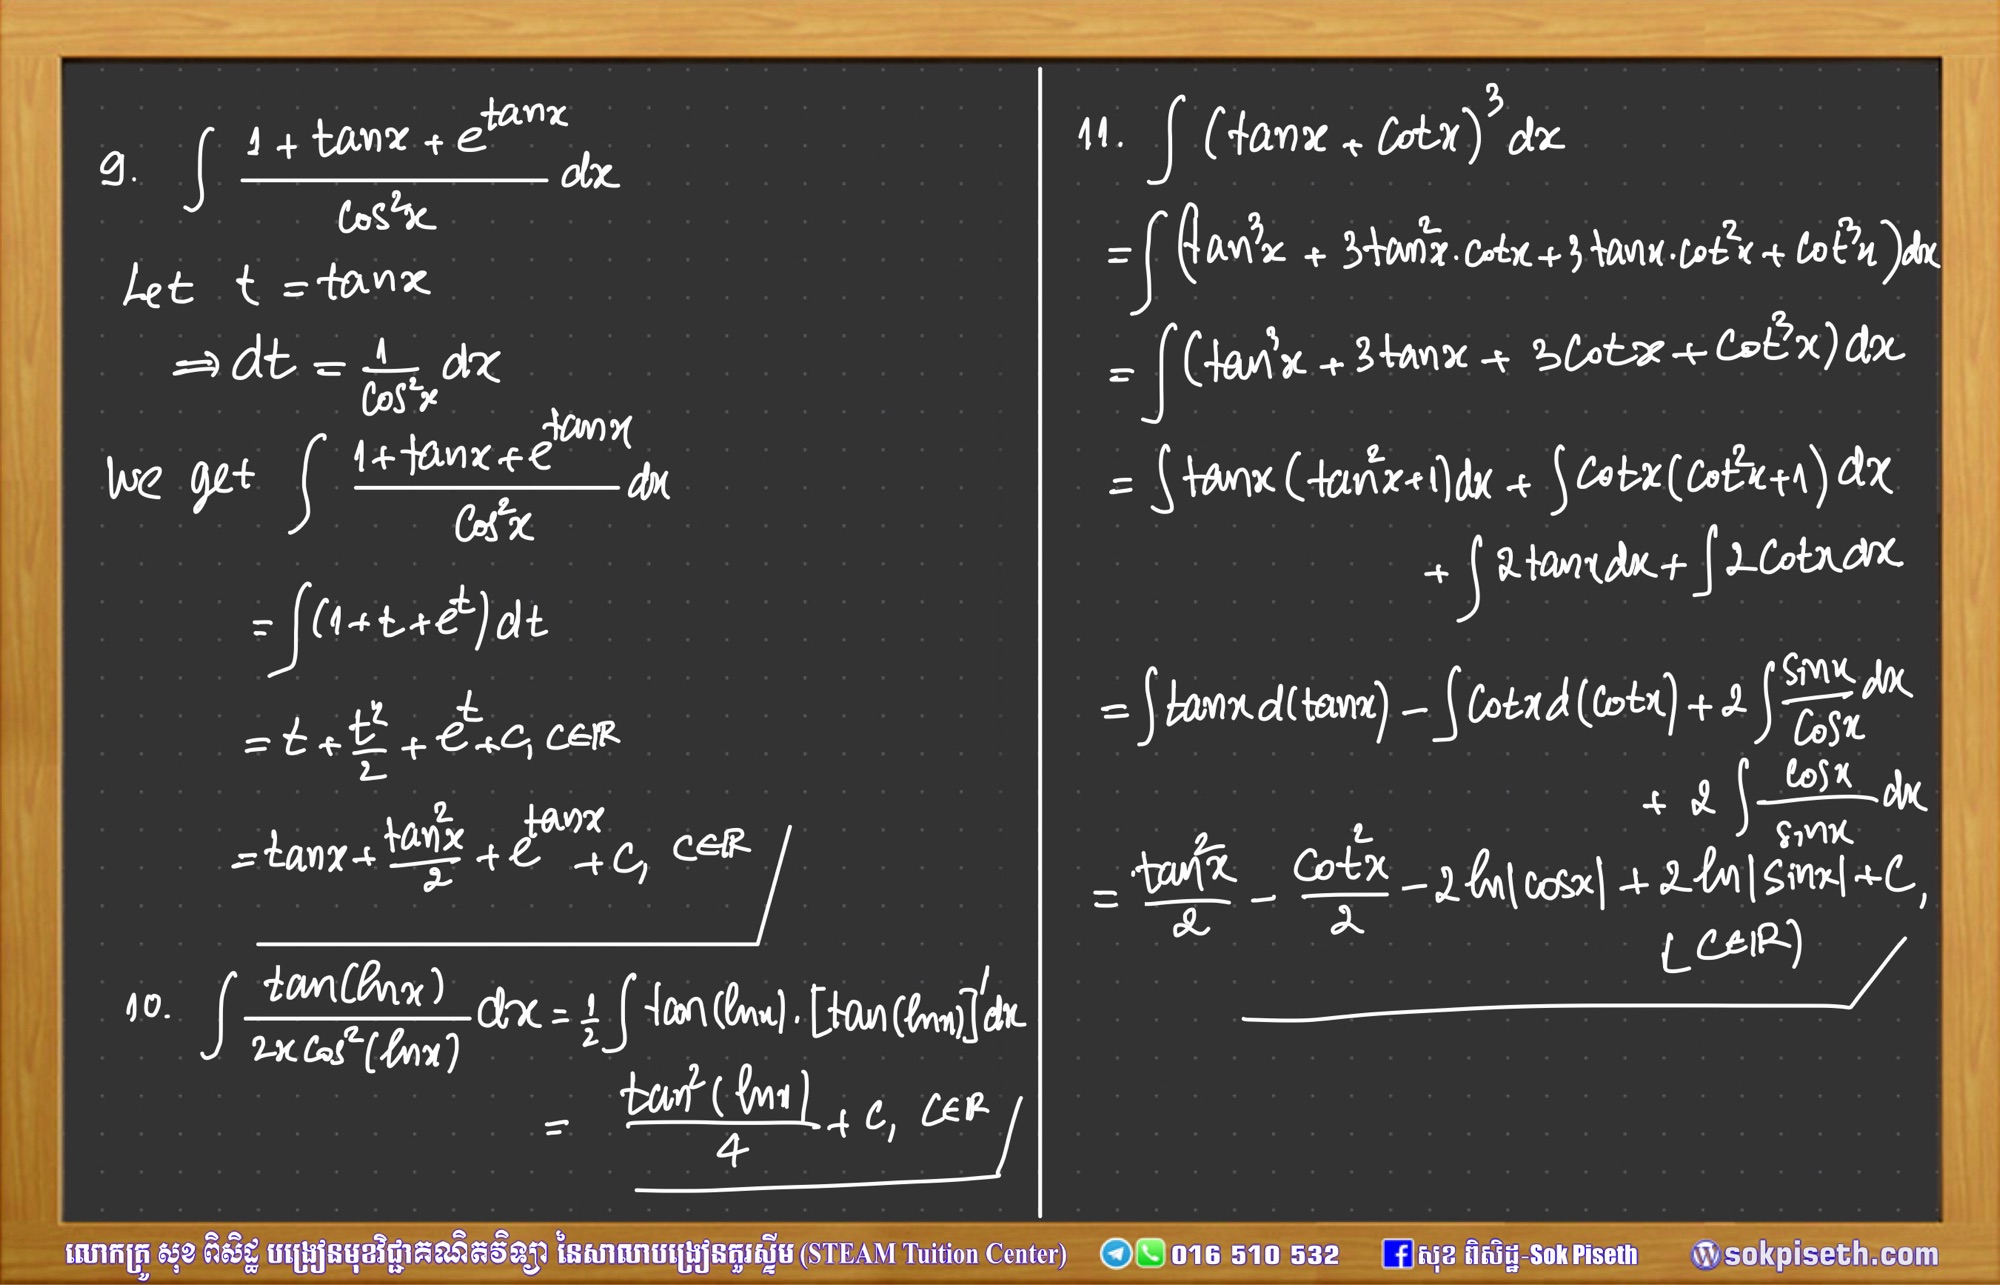 9. ∫ (1 + tanx + e^tanx)/(cos²x) dx
Let t = tanx
⇒ dt = 1/(cos²x) dx
We get ∫ (1 + tanx + e^tanx)/(cos²x) dx
= ∫(1 + t + e^t) dt
= t + t²/2 + e^t + c, c∈ℝ
= tanx + tan²x/2 + e^tanx + c, c∈ℝ
10. ∫ tan(lnx)/(2x cos²(lnx)) dx = 1/2 ∫ tan(lnx) . [tan(lnx)]' dx
= tan²(lnx)/4 + c, c∈ℝ
11. ∫ (tanx + cotx)³ dx
= ∫ (tan³x + 3tan²x . cotx + 3tanx . cot²x + cot³x) dx
= ∫ (tan³x + 3tanx + 3cotx + cot³x) dx
= ∫ tanx (tan²x + 1) dx + ∫ cotx (cot²x + 1) dx
+ ∫ 2tanx dx + ∫ 2cotx dx
= ∫ tanx d(tanx) − ∫ cotx d(cotx) + 2 ∫ sinx/cosx dx
+ 2 ∫ cosx/sinx dx
= tan²x/2 − cot²x/2 − 2 ln|cosx| + 2 ln|sinx| + c,
(c∈ℝ)
លោកគ្រូ សុខ ពិសិដ្ឋ បង្រៀនមុខវិជ្ជាគណិតវិទ្យា នៃសាលាបង្រៀនគួរស្ទីម (STEAM Tuition Center) 016 510 532 សុខ ពិសិដ្ឋ-Sok Piseth sokpiseth.com